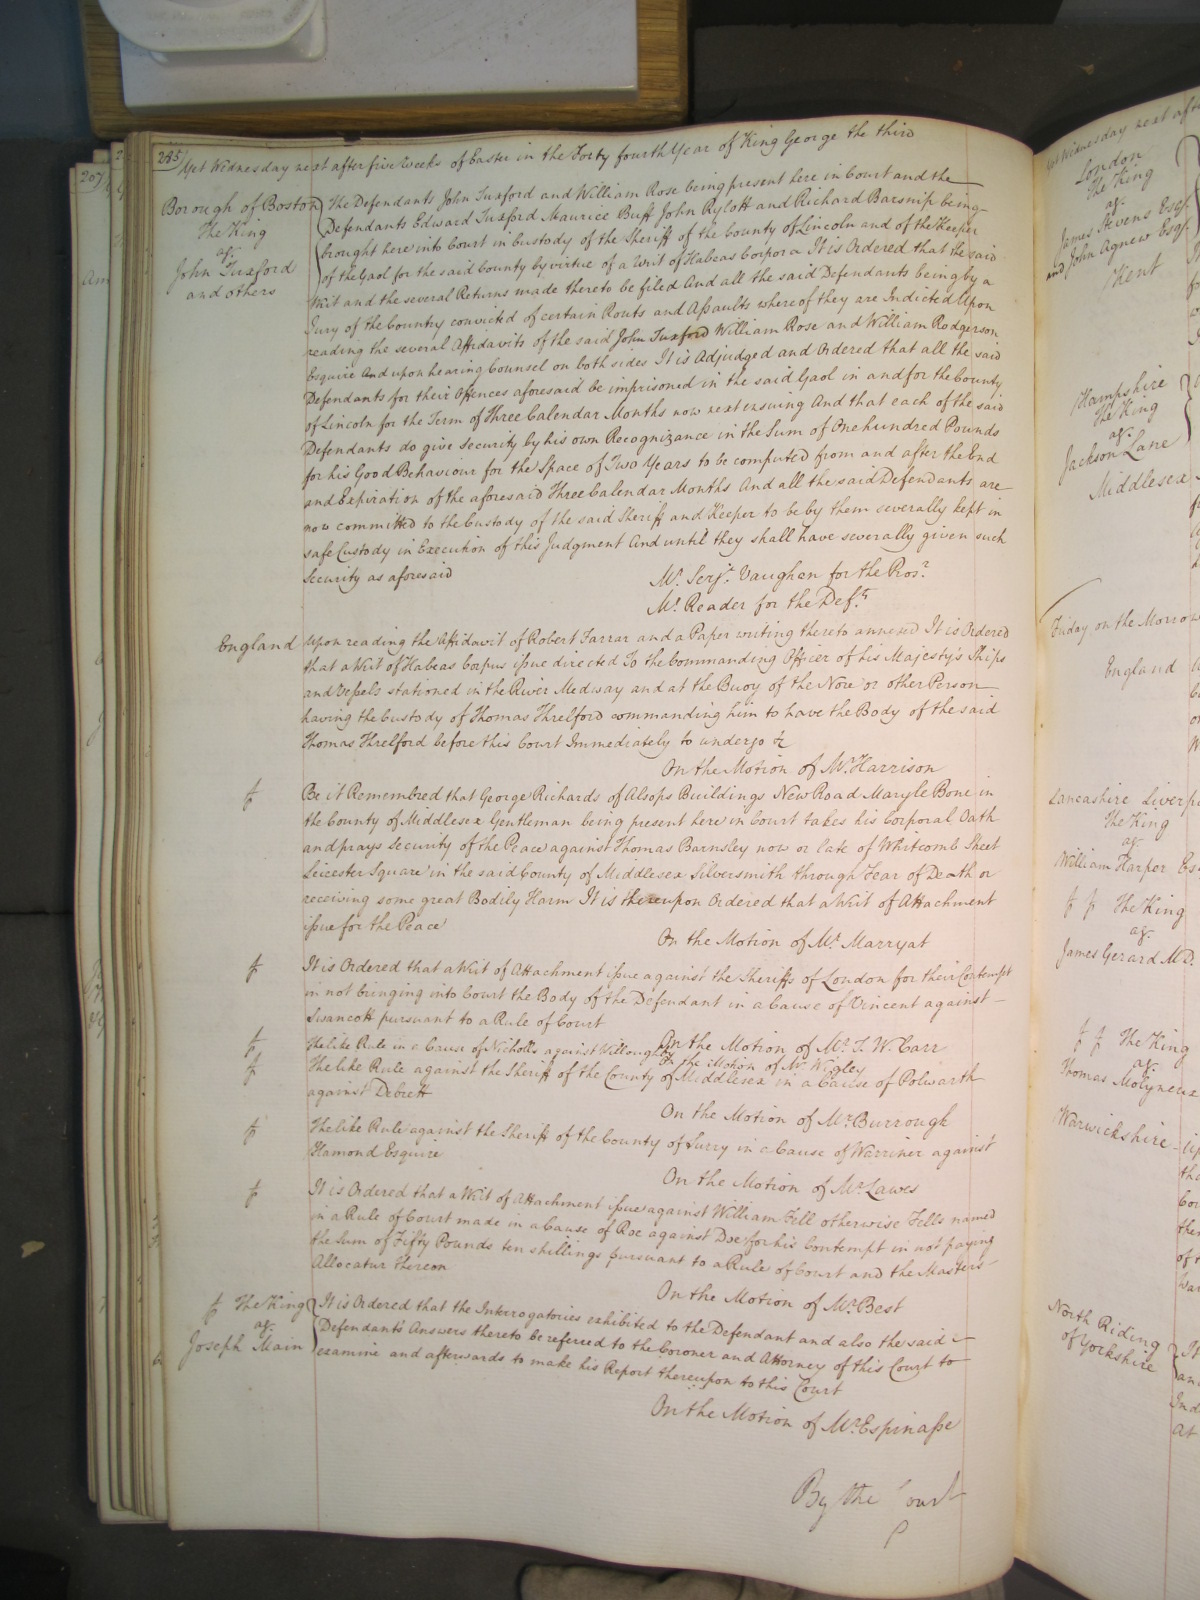 285
Yet Wednesday next after five Weeks of Easter in the Forty fourth Year of King George the third
Borough of Boston
The King
ag.
John Tuxford
and others
The Defendants John Tuxford and William Rose being present here in Court and the
Defendants Edward Tuxford Maurice Buff John Rylott and Richard Barsnip being
brought here into Court in Custody of the Sheriff of the County of Lincoln and of the Keeper
of the Gaol for the said County by virtue of a Writ of Habeas Corpora It is Ordered that the said
Writ and the several Returns made thereto be filed And all the said Defendants being by a
Jury of the Country convicted of certain Routs and Assaults whereof they are Indicted Upon
reading the several Affidavits of the said John Tuxford William Rose and William Rodgerson
Esquire And upon hearing Counsel on both sides It is Adjudged and Ordered that all the said
Defendants for their Offences aforesaid be imprisoned in the said Gaol in and for the County
of Lincoln for the Term of Three Calendar Months now next ensuing And that each of the said
Defendants do give Security by his own Recognizance in the Sum of One hundred Pounds
for his Good Behaviour for the Space of Two Years to be computed from and after the End
and Expiration of the aforesaid Three Calendar Months And all the said Defendants are
now committed to the Custody of the said Sheriff and Keeper to be by them severally kept in
safe Custody in Execution of this Judgment And until they shall have severally given such
Security as aforesaid
Mr. Serjt. Vaughan for the Prosr.
Mr. Reader for the Defts.
England
Upon reading the Affidavit of Robert Farrar and a Paper writing thereto annexed It is Ordered
that a Writ of Habeas Corpus issue directed To the Commanding Officer of his Majesty's Ships
and Vessels stationed in the River Medway and at the Buoy of the Nore or other Person
having the Custody of Thomas Threlford commanding him to have the Body of the said
Thomas Threlford before this Court Immediately to undergo &c
On the Motion of Mr. Harrison
Be it Remembred that George Richards of Alsops Buildings New Road Maryle Bone in
the County of Middlesex Gentleman being present here in Court takes his Corporal Oath
and prays Security of the Peace against Thomas Barnsley now or late of Whitcomb Street
Leicester Square in the said County of Middlesex Silversmith through Fear of Death or
receiving some great Bodily Harm It is thereupon Ordered that a Writ of Attachment
issue for the Peace
On the Motion of Mr. Marryat
It is Ordered that a Writ of Attachment issue against the Sheriffs of London for their Contempt
in not bringing into Court the Body of the Defendant in a Cause of Vincent against
Swancott pursuant to a Rule of Court
On the Motion of Mr. T. W. Carr
The like Rule in a Cause of Nicholls against Willoughby
On the Motion of Mr. Wigley
The like Rule against the Sheriff of the County of Middlesex in a Cause of Polwarth
against Debrett
On the Motion of Mr. Burrough
The like Rule against the Sheriff of the County of Surry in a Cause of Warriner against
Hamond Esquire
On the Motion of Mr. Lawes
It is Ordered that a Writ of Attachment issue against William Fell otherwise Fells named
in a Rule of Court made in a Cause of Roe against Doe for his Contempt in not paying
the Sum of Fifty Pounds ten shillings pursuant to a Rule of Court and the Master's
Allocatur thereon
On the Motion of Mr. Best
The King
ag.
Joseph Main
It is Ordered that the Interrogatories exhibited to the Defendant and also the said
Defendants Answers thereto be referred to the Coroner and Attorney of this Court to
examine and afterwards to make his Report thereupon to this Court
On the Motion of Mr. Espinasse
By the Court
207
Wednesday next after
London
The King
ag.
James Stevens Esqr.
and John Agnew Esqr.
Kent
Hampshire
The King
ag.
Jackson Lane
Middlesex
Friday on the Morrow
England
Lancashire
The King
ag.
William Harper
The King
ag.
James Gerard M.D.
The King
ag.
Thomas Molyneux
Warwickshire
North Riding
of Yorkshire